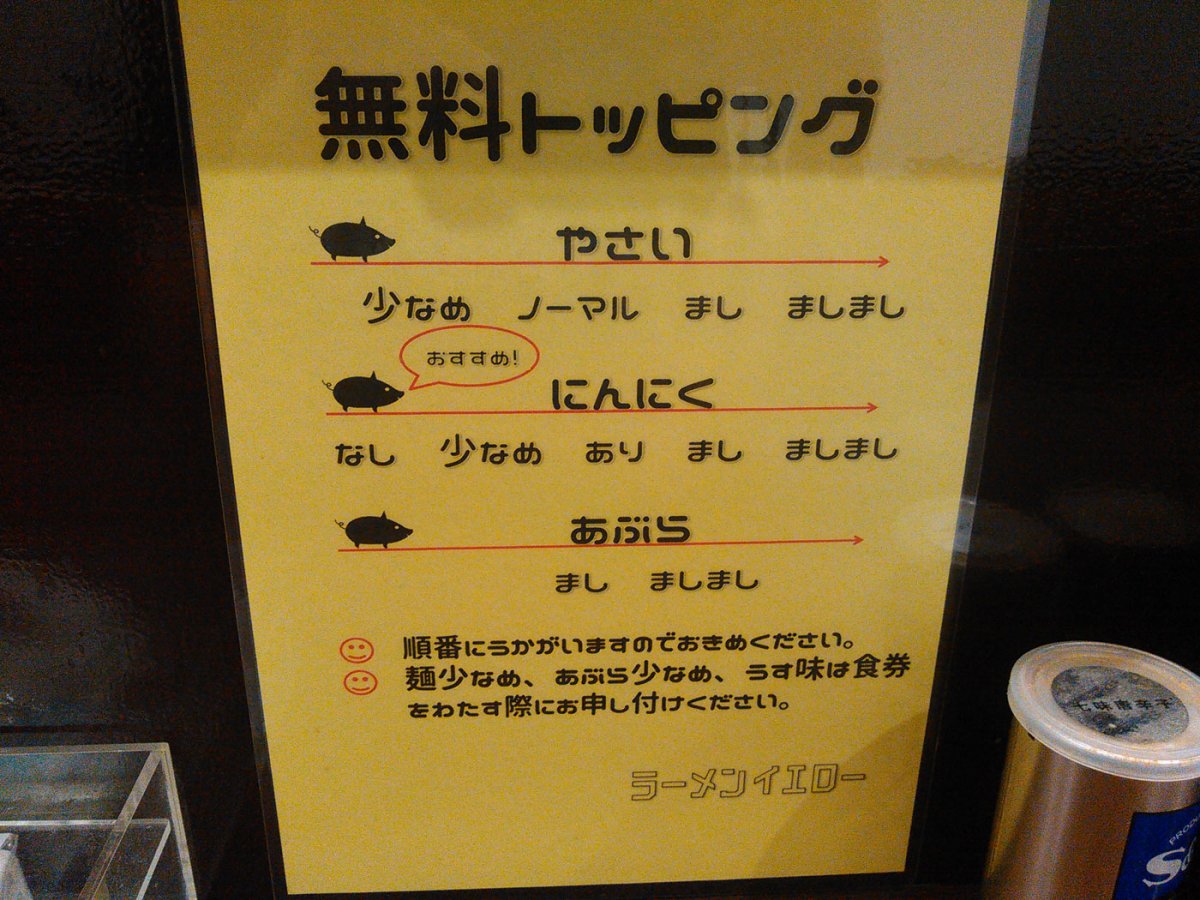 無料トッピング
やさい
少なめ ノーマル まし ましまし
おすすめ!
にんにく
なし 少なめ あり まし ましまし
あぶら
まし ましまし
順番にうかがいますのでおきめください。
麺少なめ、あぶら少なめ、うす味は食券
をわたす際にお申し付けください。
ラーメンイエロー
七味唐辛子